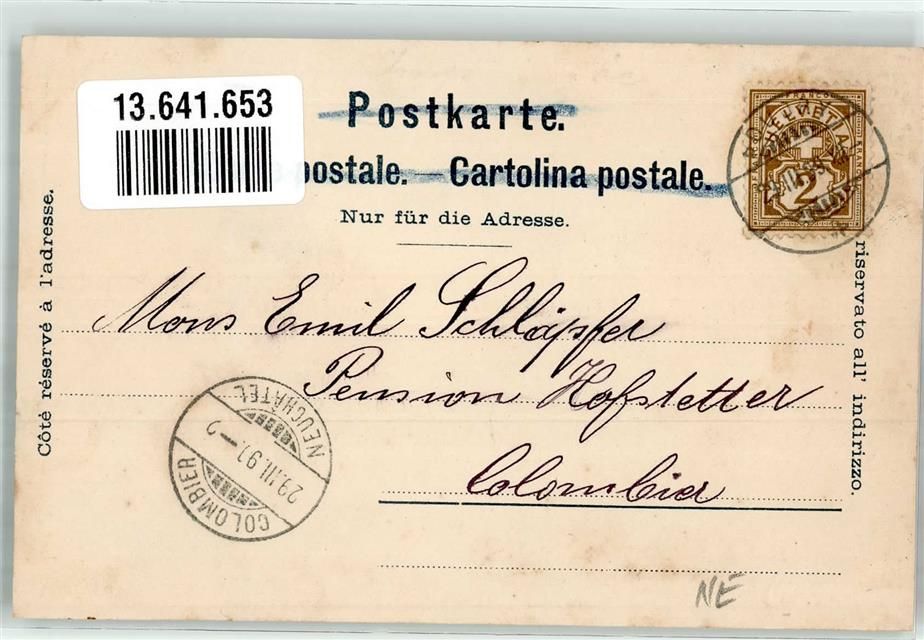 13.641.653
Postkarte.
postale. — Cartolina postale.
Nur für die Adresse.
Côté réservé à l'adresse.
riservato all' indirizzo.
FRANCO
HELVETIA
2
Mons Emil Schläpfer
Pension Hofstetter
Colombier
NEUCHÂTEL
COLOMBIER
NE